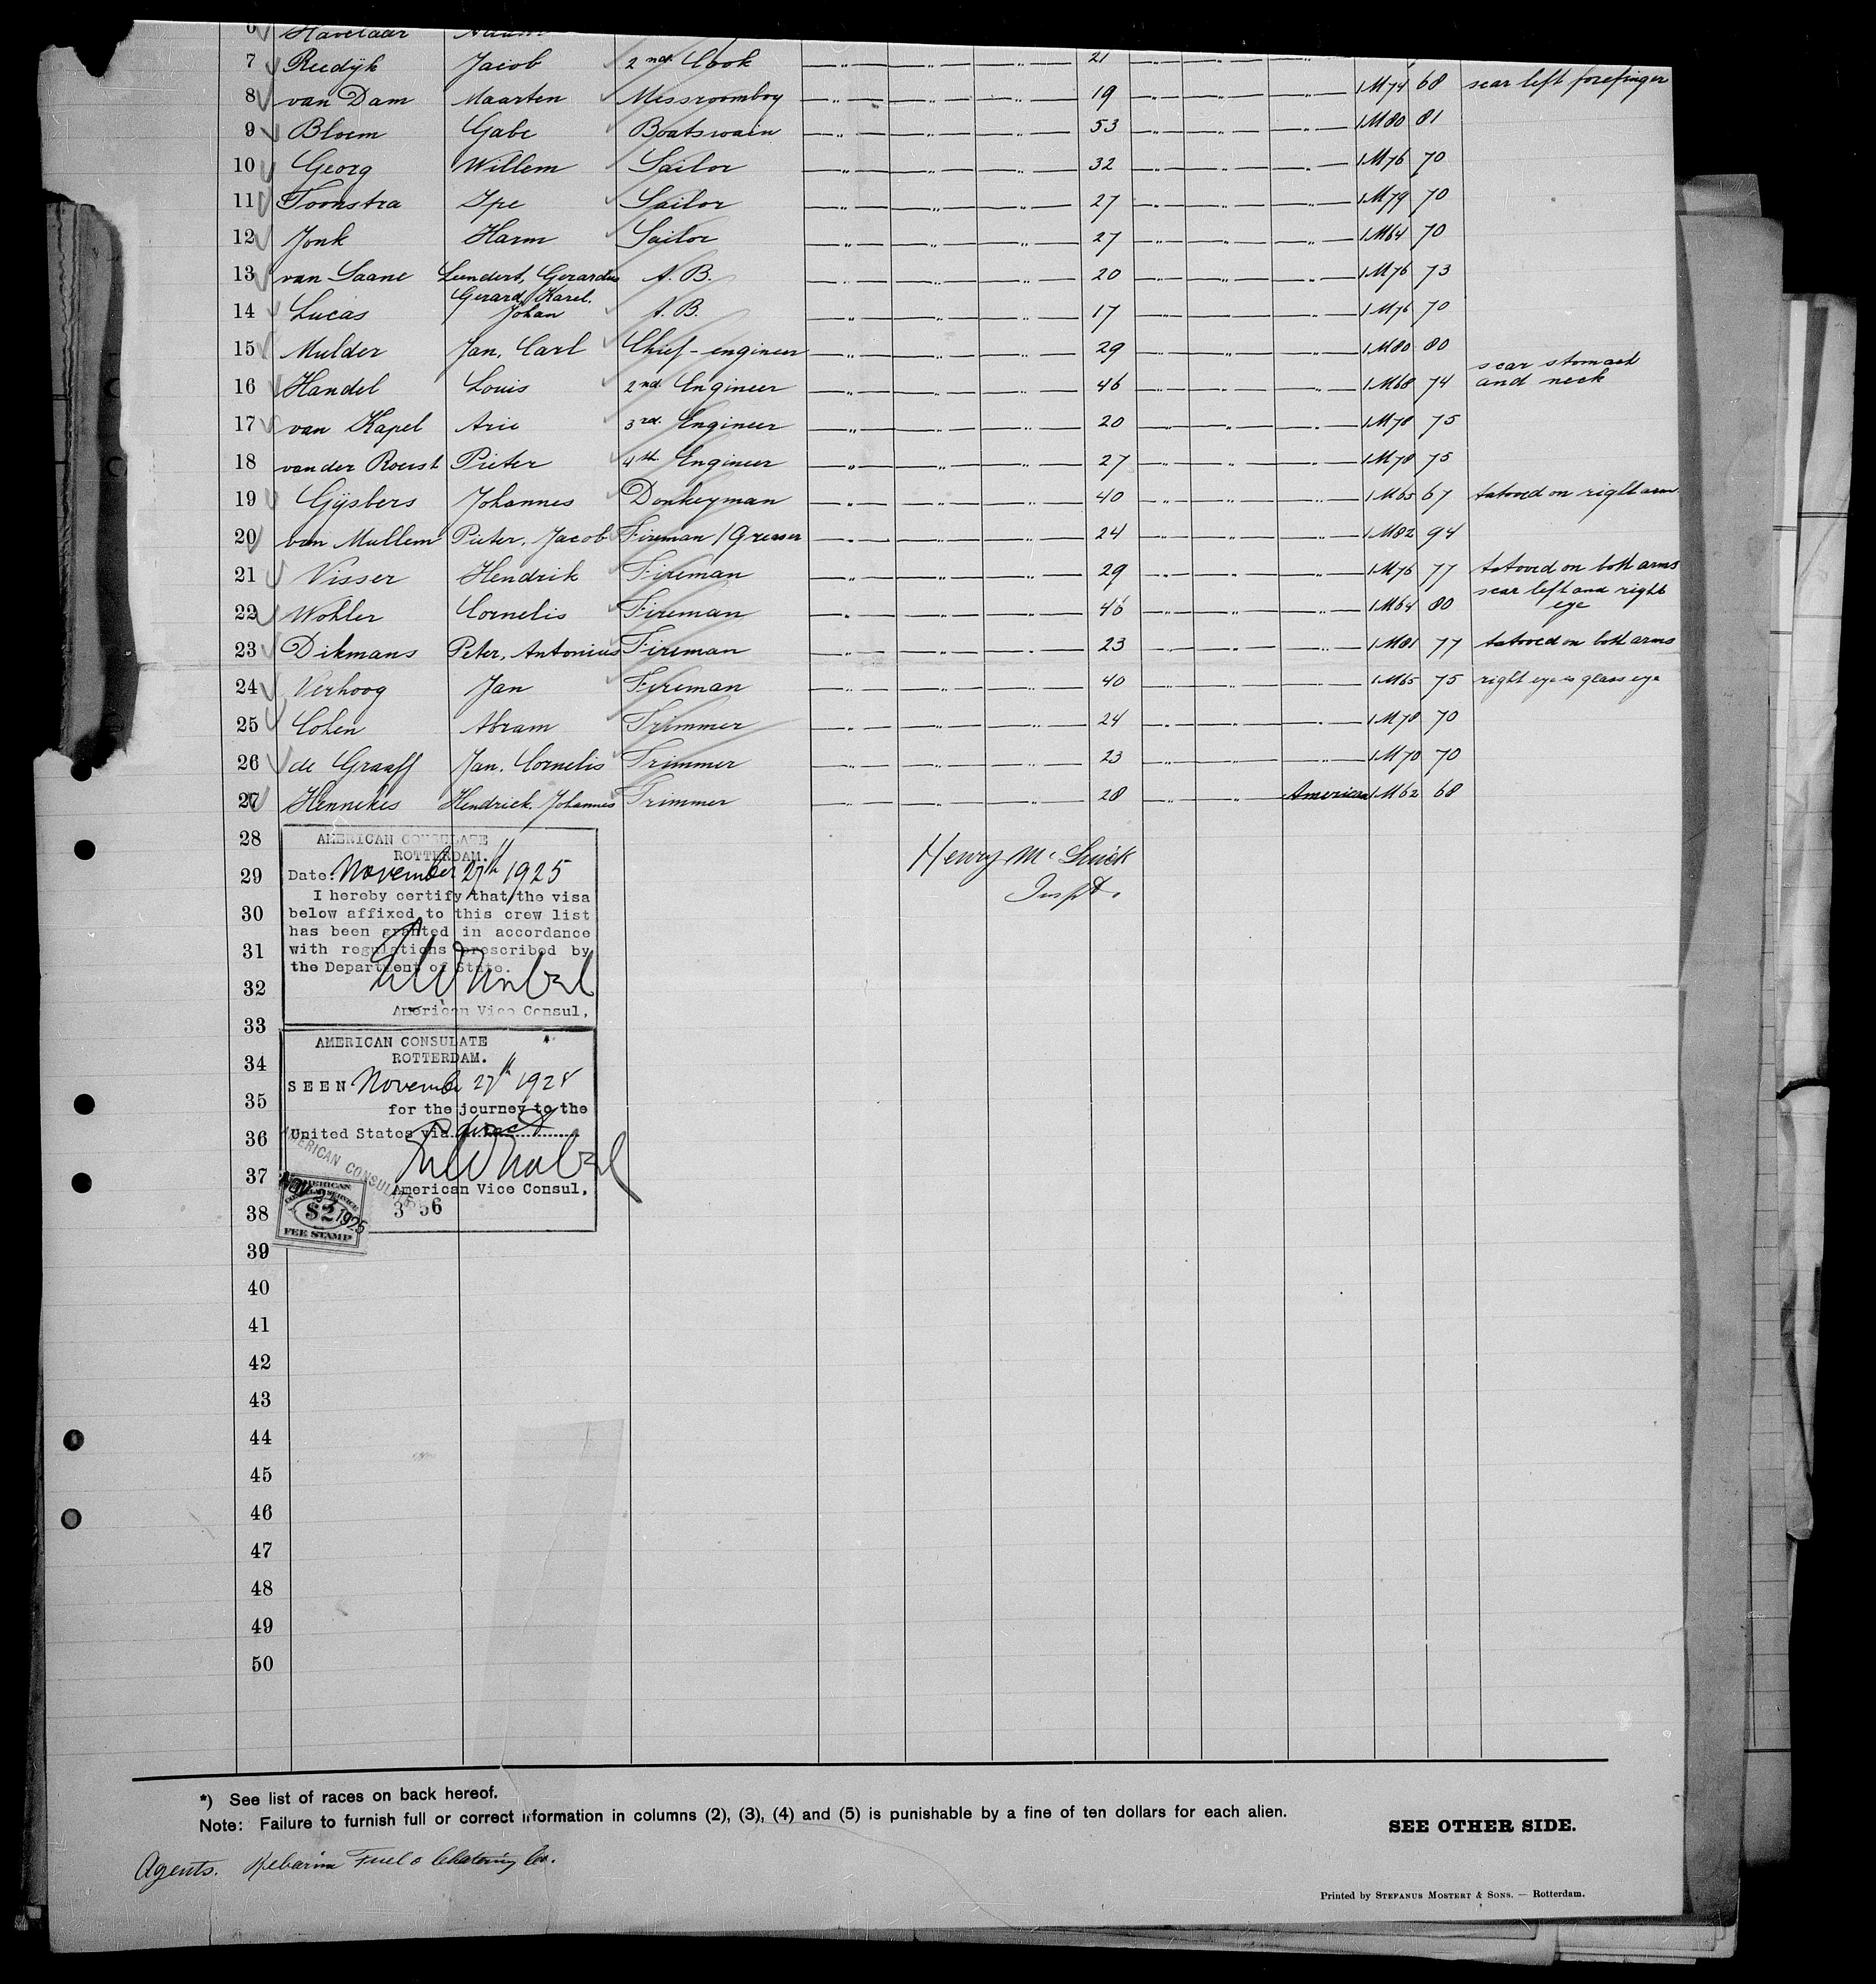 6 Havelaar
7 Reedijk Jacob 2nd. Cook —„— —„— —„— 21 —„— —„— —„—
8 van Dam Maarten Messroomboy —„— —„— —„— 19 —„— —„— —„— 1M74 68 scar left forefinger
9 Bloem Gabe Boatswain —„— —„— —„— 53 —„— —„— —„— 1M80 81
10 Georg Willem Sailor —„— —„— —„— 32 —„— —„— —„— 1M76 70
11 Toonstra Ipe Sailor —„— —„— —„— 27 —„— —„— —„— 1M79 70
12 Jonk Harm Sailor —„— —„— —„— 27 —„— —„— —„— 1M64 70
13 van Laane Leendert, Gerardus A. B. —„— —„— —„— 20 —„— —„— —„— 1M76 73
Gerard, Karel,
14 Lucas Johan A. B. —„— —„— —„— 17 —„— —„— —„— 1M76 70
15 Mulder Jan, Carl Chief-engineer —„— —„— —„— 29 —„— —„— —„— 1M80 80
scar stomach
16 Handel Louis 2nd. Engineer —„— —„— —„— 46 —„— —„— —„— 1M68 74 and neck
17 van Kapel Arie 3rd. Engineer —„— —„— —„— 20 —„— —„— —„— 1M78 75
18 van der Roest Pieter 4th Engineer —„— —„— —„— 27 —„— —„— —„— 1M78 75
19 Gijsbers Johannes Donkeyman —„— —„— —„— 40 —„— —„— —„— 1M65 67 tatooed on right arm
20 van Mullem Pieter, Jacob Fireman/Greaser —„— —„— —„— 24 —„— —„— —„— 1M82 94
21 Visser Hendrik Fireman —„— —„— —„— 29 —„— —„— —„— 1M76 77 tatooed on both arms
scar left and right
22 Wohler Cornelis Fireman —„— —„— —„— 46 —„— —„— —„— 1M64 80 eye
23 Dikmans Peter, Antonius Fireman —„— —„— —„— 23 —„— —„— —„— 1M81 77 tatooed on both arms
24 Verhoog Jan Fireman —„— —„— —„— 40 —„— —„— —„— 1M65 75 right eye is glass eye
25 Cohen Abram Trimmer —„— —„— —„— 24 —„— —„— —„— 1M78 70
26 de Graaff Jan, Cornelis Trimmer —„— —„— —„— 23 —„— —„— —„— 1M70 70
27 Hennekes Hendrick, Johannes Trimmer —„— —„— —„— 28 —„— —„— American 1M62 68
28
AMERICAN CONSULATE
ROTTERDAM.
Henry Mc
29
Date: November 27th 1925
Inspt.
I hereby certify that the visa
30
below affixed to this crew list
has been granted in accordance
31
with regulations prescribed by
the Department of State.
32
American Vice Consul,
33
AMERICAN CONSULATE
ROTTERDAM.
34
SEEN November 27th 1925
35
for the journey to the
36
United States via direct
AMERICAN CONSULATE
37
American Vice Consul,
NOV 27 1925
AMERICAN
CONSULAR SERVICE
$2
FEE STAMP
38
39
40
41
42
43
44
45
46
47
48
49
50
*) See list of races on back hereof.
Note: Failure to furnish full or correct information in columns (2), (3), (4) and (5) is punishable by a fine of ten dollars for each alien.
SEE OTHER SIDE.
Agents. Fuel & Co.
Printed by STEFANUS MOSTERT & SONS. — Rotterdam.